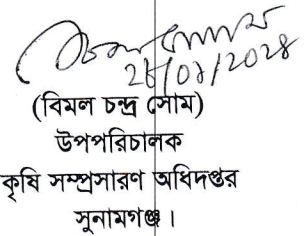 (বিমল চন্দ্র সোম)
উপপরিচালক
কৃষি সম্প্রসারণ অধিদপ্তর
সুনামগঞ্জ।